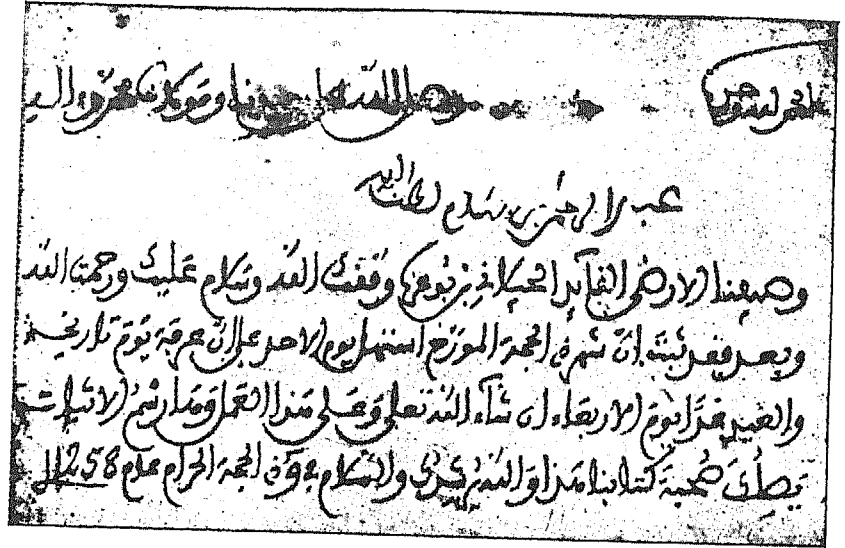 الحمد لله وحده وصلى الله على سيدنا ومولانا محمد وءاله
عبد الرحمن بن هشام لطف الله به
وصيفنا الارضى القايد الجيلاني بن بوعزة وفقك الله وسلام عليك ورحمت الله
وبعد فقد ثبت ان شهر ذي الحجة المورخ استهل يوم الاحد على ان عرفة يوم تاريخه
والعيد غدا يوم الاربعاء ان شاء الله تعلى وعلى هذا العمل
يصلك صحبة كتابنا هذا والله يرعاك والسلام في ذي الحجة الحرام عام 1258